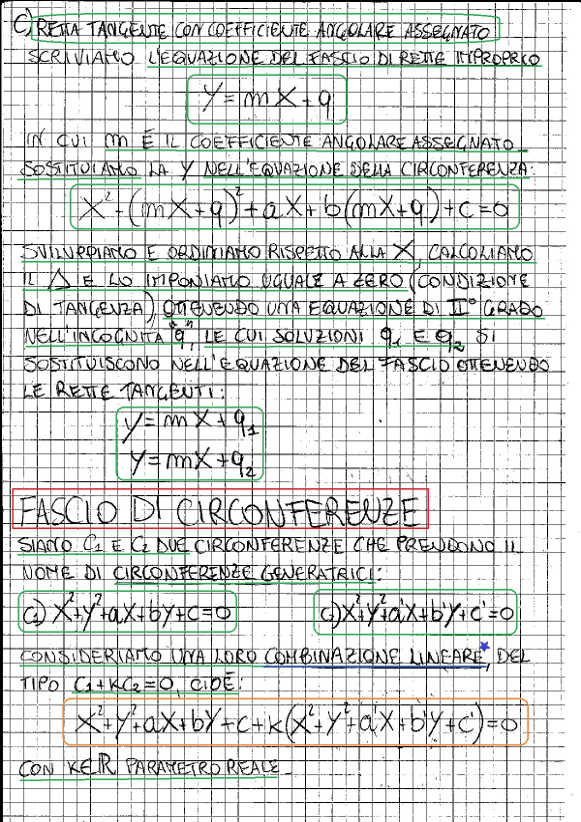 C) RETTA TANGENTE CON COEFFICIENTE ANGOLARE ASSEGNATO
SCRIVIAMO L'EQUAZIONE DEL FASCIO DI RETTE IMPROPRIO
Y = mX + q
IN CUI m È IL COEFFICIENTE ANGOLARE ASSEGNATO
SOSTITUIAMO LA Y NELL'EQUAZIONE DELLA CIRCONFERENZA:
X² + (mX + q)² + aX + b(mX + q) + c = 0
SVILUPPIAMO E ORDINIAMO RISPETTO ALLA X, CALCOLIAMO
IL Δ E LO IMPONIAMO UGUALE A ZERO (CONDIZIONE
DI TANGENZA), OTTENENDO UNA EQUAZIONE DI II° GRADO
NELL'INCOGNITA "q", LE CUI SOLUZIONI q₁ E q₂ SI
SOSTITUISCONO NELL'EQUAZIONE DEL FASCIO OTTENENDO
LE RETTE TANGENTI:
y = mX + q₁
y = mX + q₂
FASCIO DI CIRCONFERENZE
SIANO C₁ E C₂ DUE CIRCONFERENZE CHE PRENDONO IL
NOME DI CIRCONFERENZE GENERATRICI:
C₁) X² + Y² + aX + bY + c = 0 C₂) X² + Y² + a'X + b'Y + c' = 0
CONSIDERIAMO UNA LORO COMBINAZIONE LINEARE*, DEL
TIPO C₁ + KC₂ = 0, CIOÈ:
X² + Y² + aX + bY + c + K(X² + Y² + a'X + b'Y + c') = 0
CON K∈ℝ PARAMETRO REALE